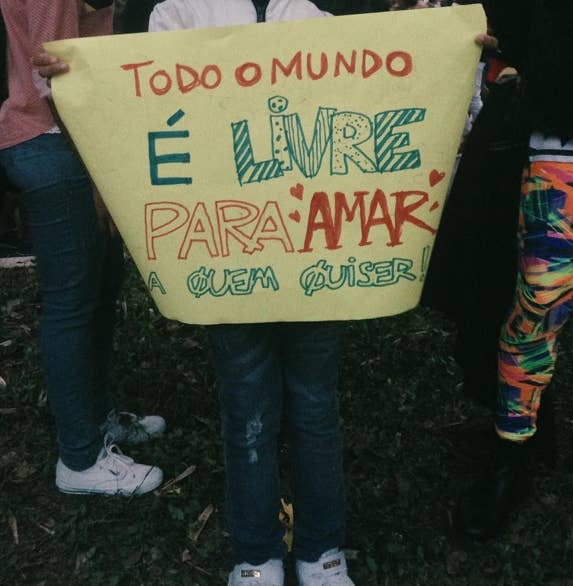 TODO O MUNDO
É LIVRE
PARA AMAR
A QUEM QUISER!